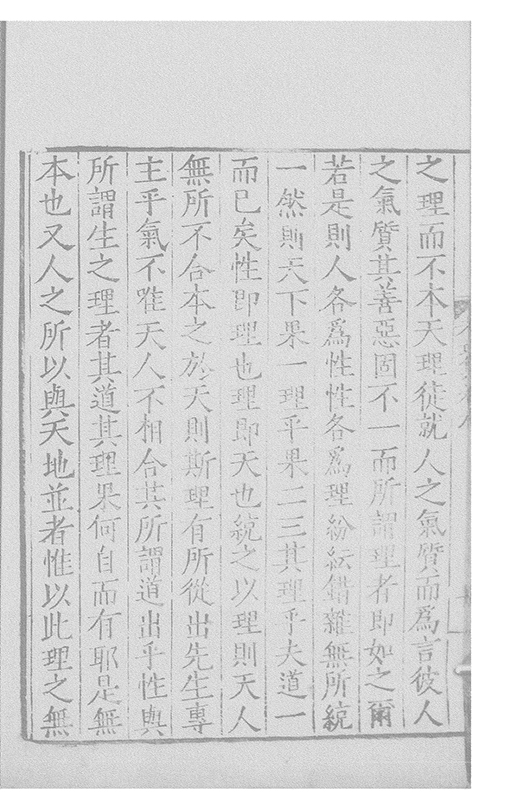 之理而不本天理徒就人之氣質而爲言彼人
之氣質其善惡固不一而所謂理者即如之爾
若是則人各爲性性各爲理紛紜錯雜無所統
一然則天下果一理乎果二三其理乎夫道一
而已矣性即理也理即天也統之以理則天人
無所不合本之於天則斯理有所從出先生專
主乎氣不唯天人不相合其所謂道出乎性與
所謂生之理者其道其理果何自而有耶是無
本也又人之所以與天地並者惟以此理之無